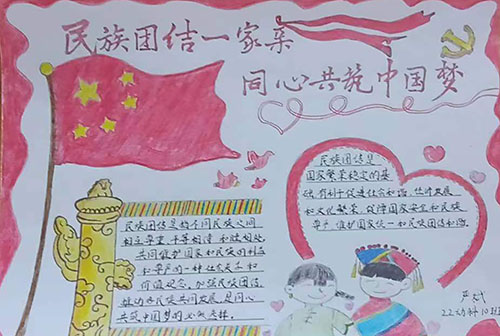 民族团结一家亲
同心共筑中国梦
民族团结是
国家繁荣稳定的基
础,有利于促进社会和谐、经济发展
和文化繁荣,保障国家安全和民族
尊严,维护国家统一和民族团结和谐。
民族团结是指不同民族之间
相互尊重、平等相待、和睦相处、
共同维护国家和民族的利益
和尊严的一种社会关系和
价值观念。加强民族团结,
推动各民族共同发展,是同心
共筑中国梦的必然选择。
22幼师10班